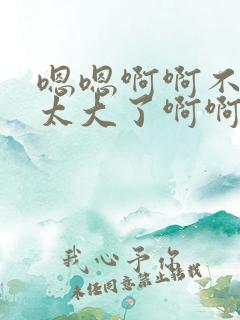 嗯嗯啊啊不
太大了啊啊
我心予你
未经同意禁止转载